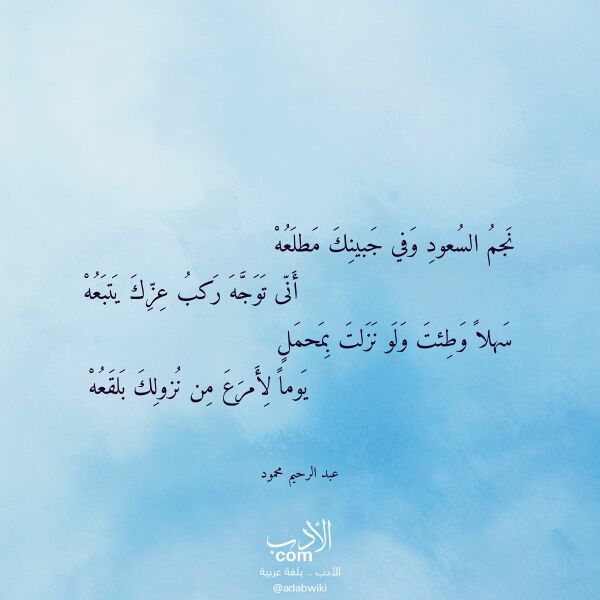 نَجمُ السُعودِ وَفي جَبينِكَ مَطلَعُهْ
أَنّى تَوَجَّهَ رَكبُ عِزِّكَ يَتبَعُهْ
سَهلاً وَطِئتَ وَلَو نَزَلتَ بِمَحمَلٍ
يَوماً لِأَمرَعَ مِن نُزولِكَ بَلقَعُهْ
عبد الرحيم محمود
الأدب
com
الأدب .. بلغة عربية
@adabwiki